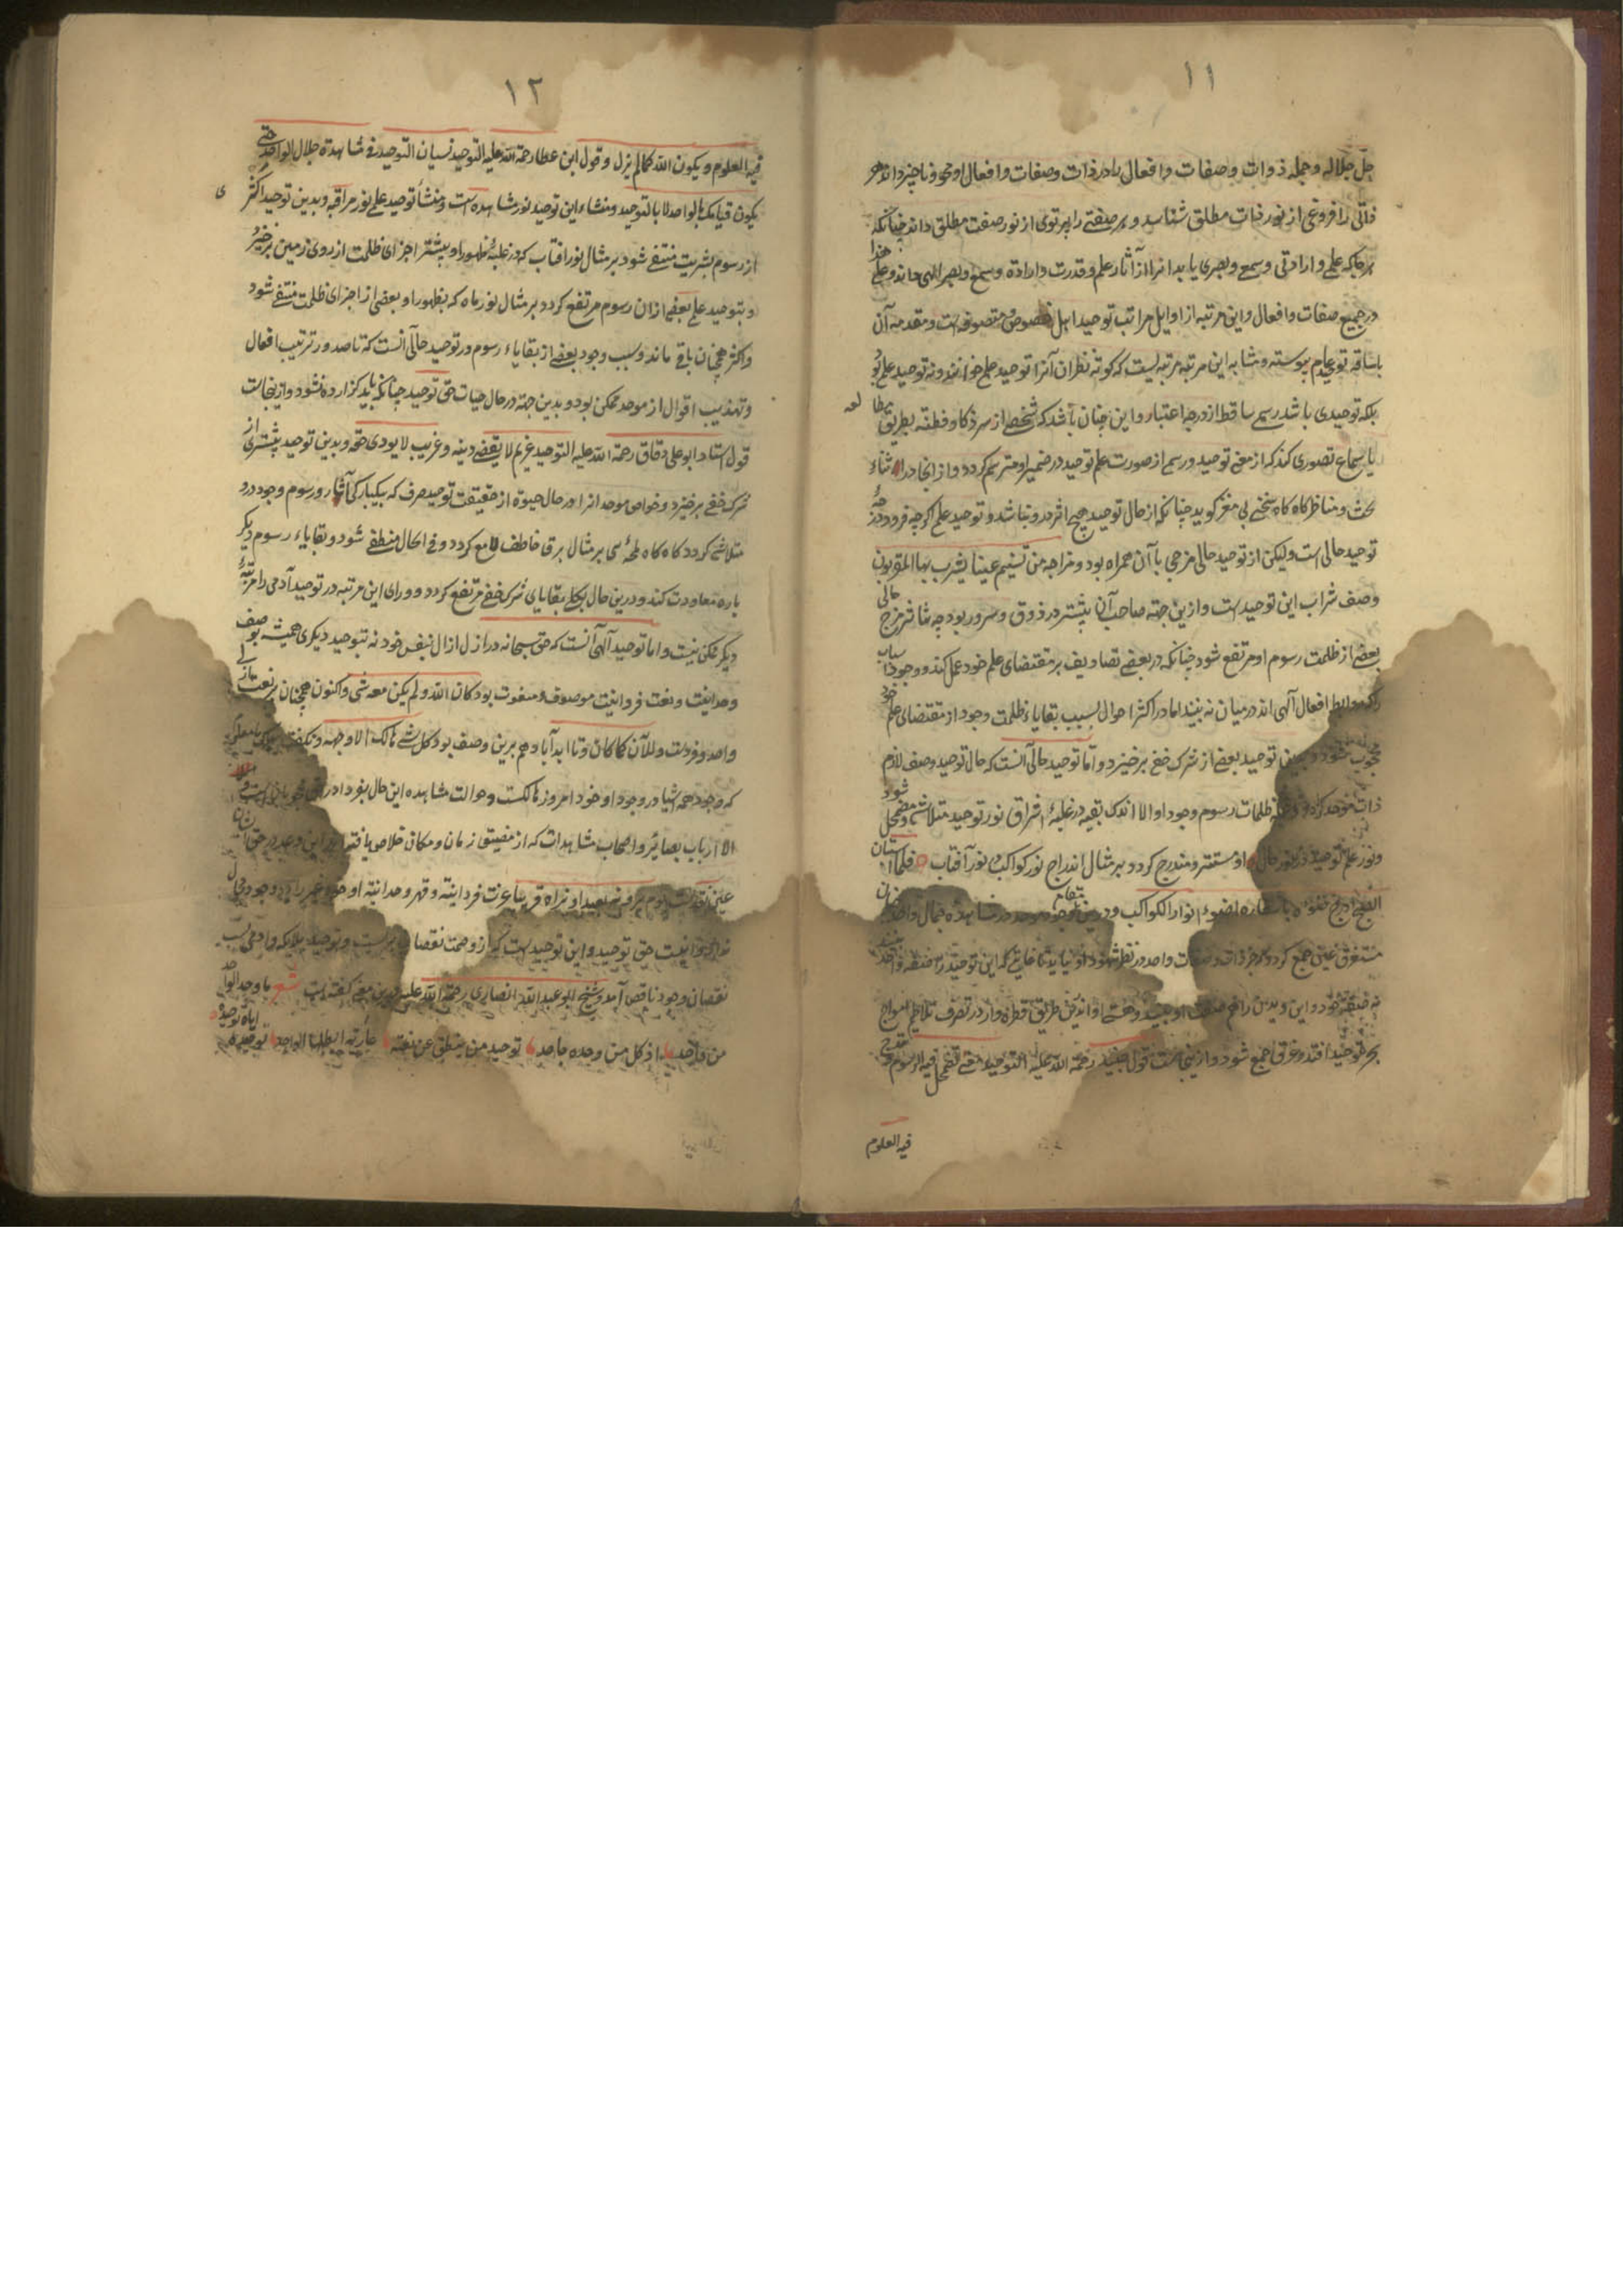 ١١
جل جلاله و جمله ذوات و صفات و افعال را در ذات و صفات و افعال او محو و ناچیز داند هر
ذاتی را فروغی از نور ذات مطلق شناسد و هر صفتی را پرتوی از نور صفت مطلق داند چنانکه
هر جا که علمی و ارادتی و سمعی و بصری یابد انرا از آثار علم و قدرت و ارادة و سمع و بصر الهی جل و علی داند
در جمیع صفات و افعال و این مرتبه از اوایل مراتب توحید اهل خصوص و متصوفه است و مقدمه آن
با ساقه توحید عام پیوسته و مشابه این مرتبه مرتبه ایست که کوته نظران آنرا توحید علمی خوانند و نه توحید علمی بو
بلکه توحیدی باشد رسمی ساقط از درجه اعتبار و این چنان باشد که شخصی از سر ذکا و فطنه بطریق مطالعه
یا سماع تصوری کند که از معنی توحید و رسمی از صورت علم توحید در ضمیر او مرتسم کردد و از انجا در اثناء
بحث و مناظره کاه کاه سخنی بی مغز کوید چنانکه از حال توحید هیچ اثر در و نباشد و توحید علمی اکرچه فرود درجه
توحید حالی است ولیکن از توحید حالی مزجی با آن همراه بود و مزاجه من تسنیم عینا یشرب بها المقربون
وصف شراب این توحید است و ازین جهة صاحب آن بیشتر در ذوق و سرور بود چه بتاثیر مزج حالی
بعضی از ظلمت رسوم او مرتفع شود چنانکه در بعضی تصاریف بر مقتضای علم خود عمل کند و وجود اسباب
را که روابط افعال آلهی اند در میان نه بیند اما در اکثر احوال بسبب بقایاء ظلمت وجود از مقتضای علم خود
محجوب شود و بدین توحید بعضی از شرک خفی برخیزد و اما توحید حالی آنست که حال توحید وصف لازم
ذات موحد کردد و جمله ظلمات رسوم وجود او الا اندک بقیه در غلبهٔ اشراق نور توحید متلاشی و مضمحل شود
و نور علم توحید در نور حال او مستتر و مندرج کردد بر مثال اندراج نور کواکب در نور آفتاب فلما استبان
الصبح ادرج ضوءه باسفاره اضواء انوار الکواکب و درین مقام وجود موحد در مشاهده جمال واحد چنان
مستغرق عین جمع کردد که جز ذات و صفات واحد در نظر شهود او نیاید تا غایتی که این توحید را صفه واحد بیند
نه صفه خود و این دیدن را هم صفت او بیند و هستی او بدین طریق قطره وار در تصرف تلاطم امواج
بحر توحید افتد و غرق جمع شود و از ینجاست قول جنید رحمة الله علیه التوحید معنی تضمحل فیه الرسوم و تندرج
فیه العلوم
١٢
فیه العلوم و یکون الله کما لم یزل و قول ابن عطا رحمة الله علیه التوحید نسیان التوحید فی مشاهدة جلال الواحد حتی
یکون قیامک بالواحد لا بالتوحید و منشاء این توحید نور مشاهده است و منشأ توحید علمی نور مراقبه و بدین توحید اکثری
از رسوم بشریت منتفی شود بر مثال نور افتاب که در غلبهٔ ظهور او بیشتر اجزای ظلمت از روی زمین برخیزد
و بتوحید علمی بعضی از ان رسوم مرتفع کردد بر مثال نور ماه که بظهور او بعضی از اجزای ظلمت منتفی شود
و اکثر همچنان باقی ماند و سبب وجود بعضی از بقایاء رسوم در توحید حالی آنست که تا صدور ترتیب افعال
و تهذیب اقوال از موحد ممکن بود و بدین جهة در حال حیات حق توحید چنانکه باید کزارده نشود و از ینجاست
قول استاد ابو علی دقاق رحمة الله علیه التوحید غریم لا یقضی دینه و غریب لا یودی حقه و بدین توحید بیشتری از
شرک خفی برخیزد و خواص موحد انرا در حال حیوة از حقیقت توحید صرف که بیکبارکی آثار و رسوم وجود درو
متلاشی کردد کاه کاه لمحهٔ بر مثال برق خاطف لامع کردد و فی الحال منطفی شود و بقایاء رسوم دیکر
باره معاودت کند و درین حال بکلی بقایای شرک خفی مرتفع کردد و ورای این مرتبه در توحید آدمی را مرتبهٔ
دیکر ممکن نیست و اما توحید آلهی آنست که حق سبحانه در ازل ازال بنفس خود نه بتوحید دیکری همیشه بوصف
وحدانیت و نعت فردانیت موصوف و منعوت بود کان الله ولم یکن معه شی و اکنون همچنان بر نعت ازلی
واحد و فردست والآن کما کان و تا ابد آباد هم برین وصف بود کل شی هالک الا وجهه و نکفت یهلک تا معلوم
که وجود همه اشیا در وجود او خود امروز هالکست و حوالت مشاهده این حال بفردا در حق محجوبانست و
الا ارباب بصائر و اصحاب مشاهدات که از مضیق زمان و مکان خلاص یافته اند این وعده در حق ایشان
عین نقدست یوم یرونه بعیدا و نراه قریبا عزت فردانیته و قهر وحدانیته او خود غیر را در وجود مجال
نداد و اینست حق توحید و این توحید است که از وصمت نقصان بریست و توحید ملایکه و آدمی بسبب
نقصان وجود ناقص آمد و شیخ ابو عبدالله انصاری رحمة الله علیه درین معنی کفته است شعر ما وحد الواحد
من واحد اذ کل من وحده جاحد توحید من ینطق عن نعته عاریة ابطلها الواحد توحیده ایاه توحیده